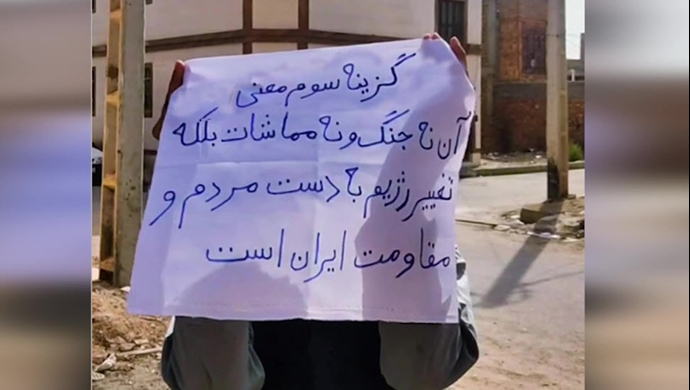 گزینه سوم معنی
آن نه جنگ و نه مماشات بلکه
تغییر رژیم با دست مردم و
مقاومت ایران است